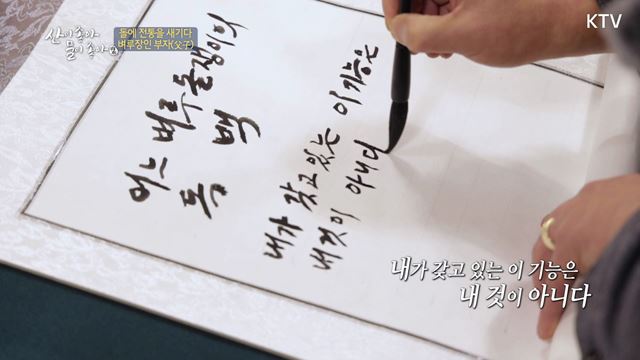 산이 좋아
물이 좋아
돌에 전통을 새기다
벼루장인 부자(父子)
KTV
어느 벼루돌쟁이의
독백
내가 갖고 있는 이 기능은
내것이 아니다
내가 갖고 있는 이 기능은
내 것이 아니다